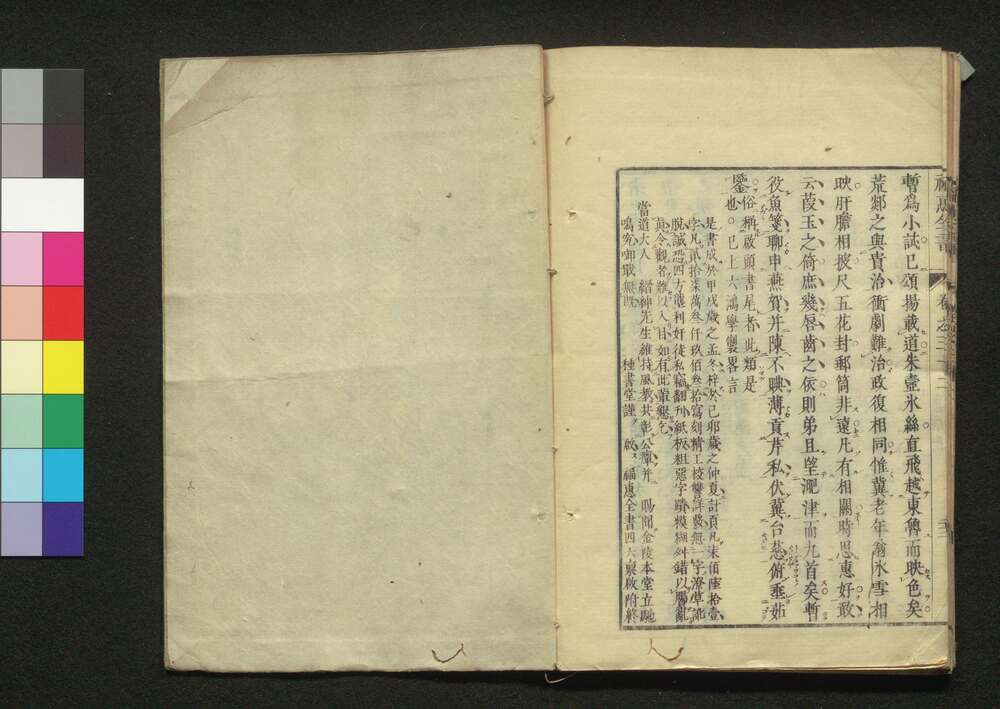 福惠全書 卷之三十二
暫爲小試已頌揚載道朱壺氷絲直飛越東魯而映色矣
荒鄰之與貴治衝劇難治政復相同惟冀老年翁氷雪相
映肝膽相披尺五花封郵筒非遠凡有相關時思惠好敢
云葭玉之倚庶幾唇齒之依則弟且望淝津而九首矣暫
役魚箋聊申燕賀并陳不腆薄貢芹私伏冀台慈俯垂茹
鑒也。已上六鴻學製畧言
俗稱啟頭書尾者此類是
是書成於甲戌歲之孟冬梓於己卯歲之仲夏計頁凡柒佰陸拾壹
字凡貳拾柒萬叁仟玖佰叁拾寫刻精工校讐詳嚴無一字潦草訛
脫誠恐四方壟利奸徒私竊翻刋紙板粗惡字蹟模糊舛錯以贋亂
眞令觀者難以入目如有此輩懇乞
當道大人 縉紳先生維持風教共彰公癉并 賜聞金陵本堂立馳
鳴究啣戢無既 種書堂謹啟 福惠全書四六裏啟附終